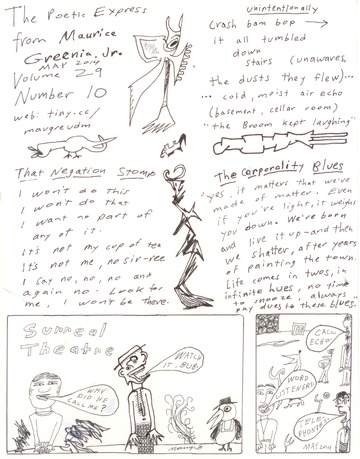 The Poetic Express
from Maurice
Greenia, Jr.
MAY 2014
Volume 29
Number 10
web: tiny.cc/
maugreudm
unintentionally
Crash bam bop →
it all tumbled
down
stairs (unawares,
the dusts they flew)...
... cold, moist air echo
(basement, cellar room)
"the Broom kept laughing"
That Negation Stomp
I won't do this
I won't do that
I want no part of
any of it.
It's not my cup of tea
It's not me, no sir-ree
I say no, no, no and
again no. Look for
me, I won't be there.
The Corporality Blues
"yes, it matters that we've
made of matter. Even
if you're light, it weighs
you down. We're born
and live it up - and then
we shatter, after years
of painting the town.
Life comes in twos, in
infinite hues, no time
to snooze, always
pay dues to these blues."
Surreal
Theatre
WHY
DID HE
CALL ME?
WATCH
IT, BUB!
maugre
CALL
ECHO!
WORD
STEVENS!
TELE-
PHONIES!
MAY 2014